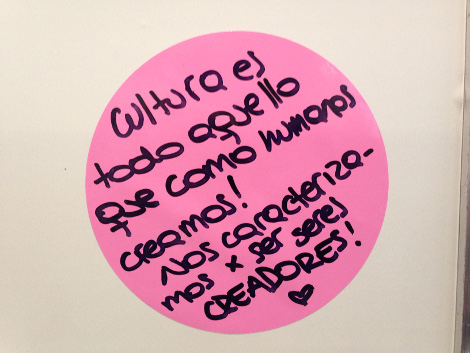 Cultura es
todo aquello
que como humanos
creamos!
Nos caracteriza-
mos x ser seres
CREADORES!
♥